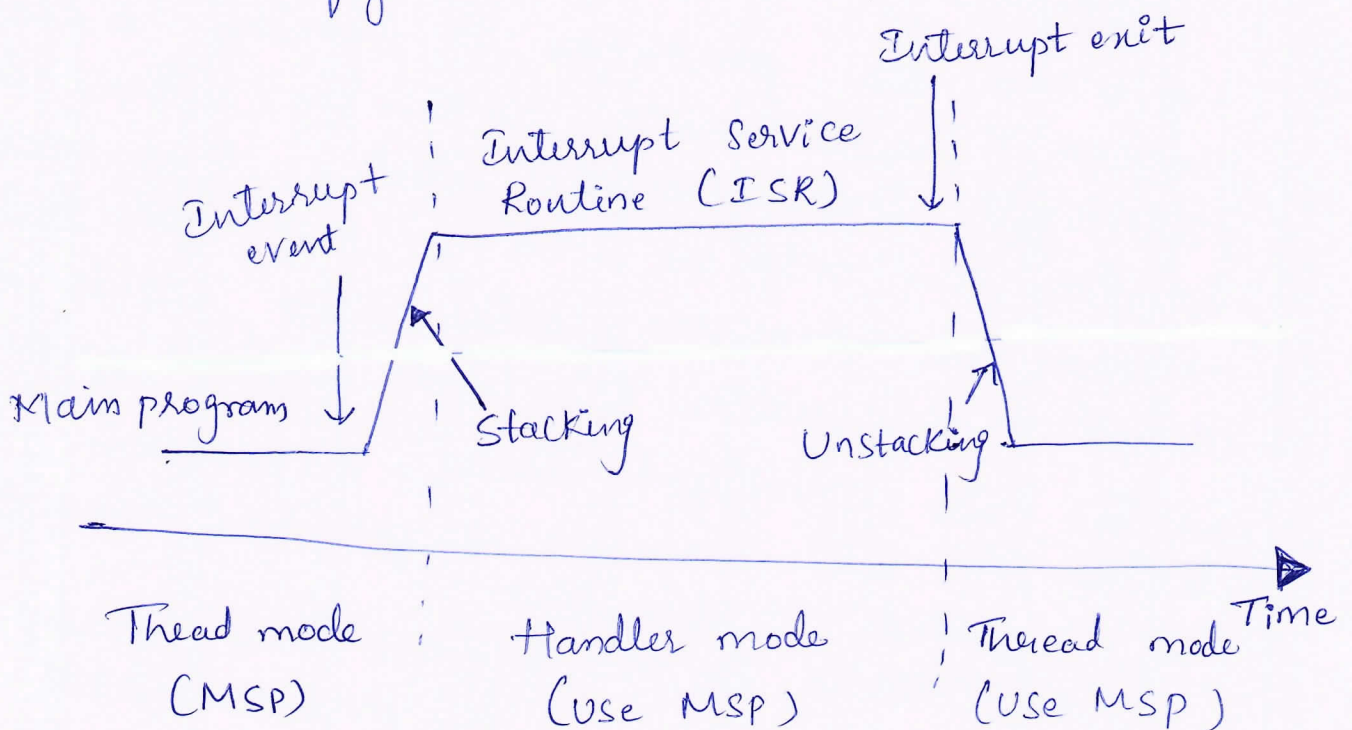 Interrupt exit
Interrupt Service
Routine (ISR)
Interrupt
event
Main program
Stacking
Unstacking
Time
Thead mode
(MSP)
Handler mode
(Use MSP)
Theread mode
(Use MSP)